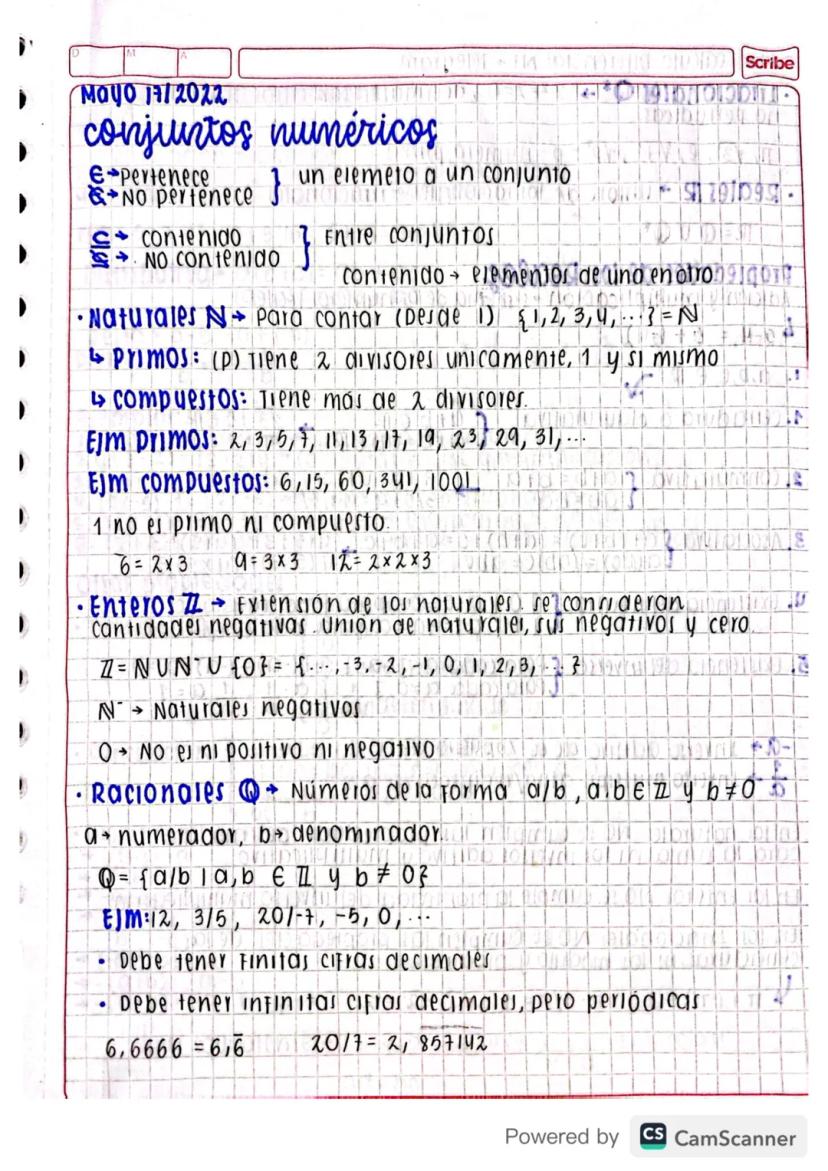 D M A Scribe
Mayo 17/2022
conjuntos numéricos
∈→Pertenece } un elemeto a un conjunto
∉→No pertenece
⊆→ contenido } Entre conjuntos
⊈→. NO contenido
contenido→ elementos de uno en otro
•Naturales ℕ→ Para contar (Desde 1) {1,2,3,4,...}=ℕ
↳ Primos: (p) Tiene 2 divisores unicamente, 1 y si mismo
↳ compuestos: Tiene más de 2 divisores.
Ejm primos: 2,3,5,7, 11,13,17, 19, 23, 29, 31,...
Ejm compuestos: 6,15, 60, 341, 1001
1 no es primo ni compuesto.
6=2x3 9=3x3 12=2x2x3
•Enteros ℤ → Extensión de los naturales. se consideran
cantidades negativas. unión de naturales, sus negativos y cero.
ℤ=ℕ∪ℕ⁻∪{0}= {...,-3,-2,-1, 0, 1, 2,3,...}
ℕ⁻ → Naturales negativos
0→ No es ni positivo ni negativo
• Racionales ℚ→ Números de la forma a/b, a,b∈ℤ y b≠0
a→numerador, b→denominador.
ℚ={a/b | a,b ∈ ℤ y b ≠ 0}
EJM:12, 3/5, 20/-7, -5, 0,...
• Debe tener finitas cifras decimales
• Debe tener infinitas cifras decimales, pero periódicas
6,6666 = 6,6̅ 20/7= 2, 8̅5̅7̅1̅4̅2̅
Powered by CS CamScanner